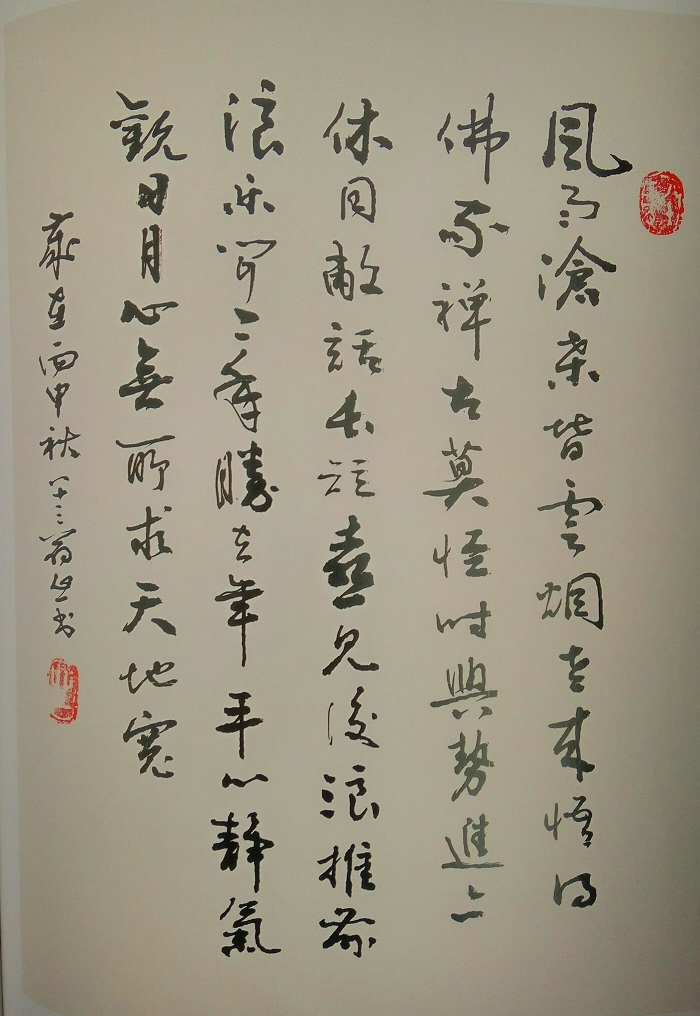 風雨滄桑皆雲烟去來悟得
佛禪古莫怪時與勢進
休同敵話長短喜見後浪推前
浪乐闻今年勝去年平心静氣
觀日月心無所求天地寬
歲在丙申秋八十三翁书